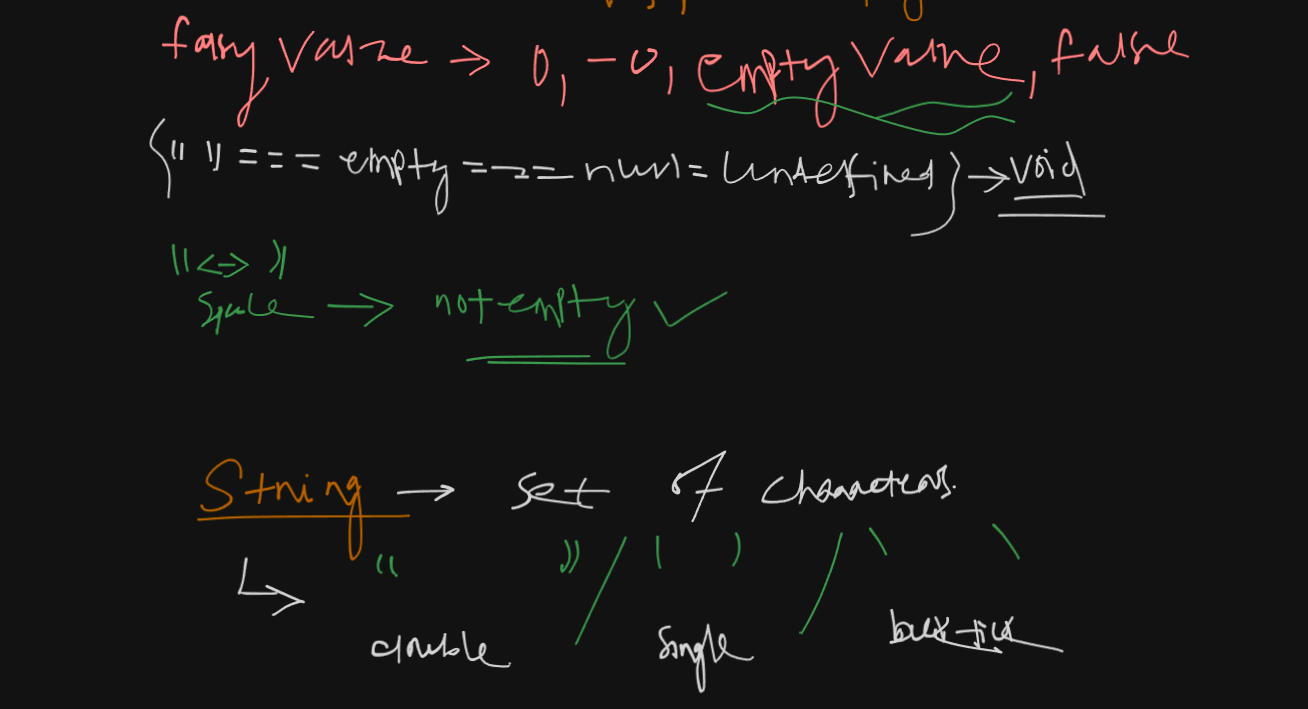 falsy value → 0, -0, empty value, false
{ " " === empty === null = undefined } → void
" <-> "
space → not empty ✓
String → set of characters.
↳ " " / ' ' / ` `
double single backtick